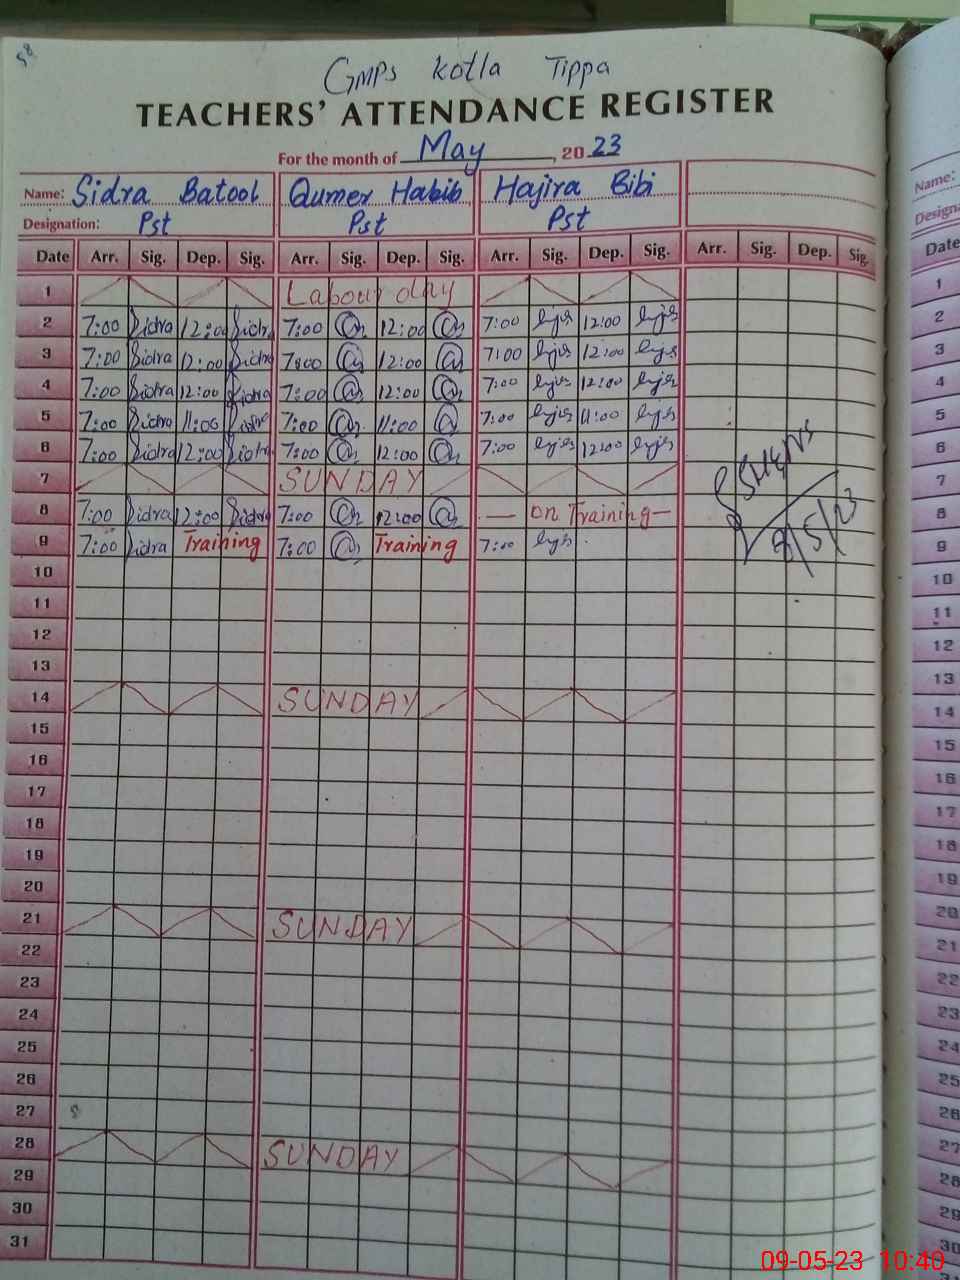 58
GMPS Kotla Tippa
TEACHERS' ATTENDANCE REGISTER
For the month of May, 2023
Name: Sidra Batool Qumer Habib Hajira Bibi
Designation: Pst Pst Pst
Date Arr. Sig. Dep. Sig. Arr. Sig. Dep. Sig. Arr. Sig. Dep. Sig. Arr. Sig. Dep. Sig.
1 Labour day
2 7:00 Sidra 12:00 Sidra 7:00 12:00 7:00 12:00
3 7:00 Sidra 12:00 Sidra 7:00 12:00 7:00 12:00
4 7:00 Sidra 12:00 Sidra 7:00 12:00 7:00 12:00
5 7:00 Sidra 11:00 Sidra 7:00 11:00 7:00 11:00
6 7:00 Sidra 12:00 Sidra 7:00 12:00 7:00 12:00
7 SUNDAY
8 7:00 Sidra 12:00 Sidra 7:00 12:00 — on Training —
9 7:00 Sidra Training 7:00 Training 7:00
10
11
12
13
14 SUNDAY
15
16
17
18
19
20
21 SUNDAY
22
23
24
25
26
27
28 SUNDAY
29
30
31
Name:
Date
1
2
3
4
5
6
7
8
9
10
11
12
13
14
15
16
17
18
19
20
21
22
23
24
25
26
27
28
29
30
09-05-23 10:40